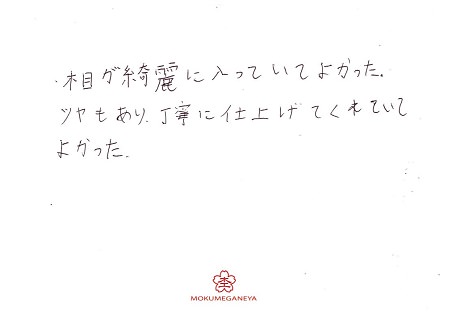 ・木目が綺麗に入っていてよかった。
ツヤもあり、丁寧に仕上げてくれていて
よかった。
杢
MOKUMEGANEYA